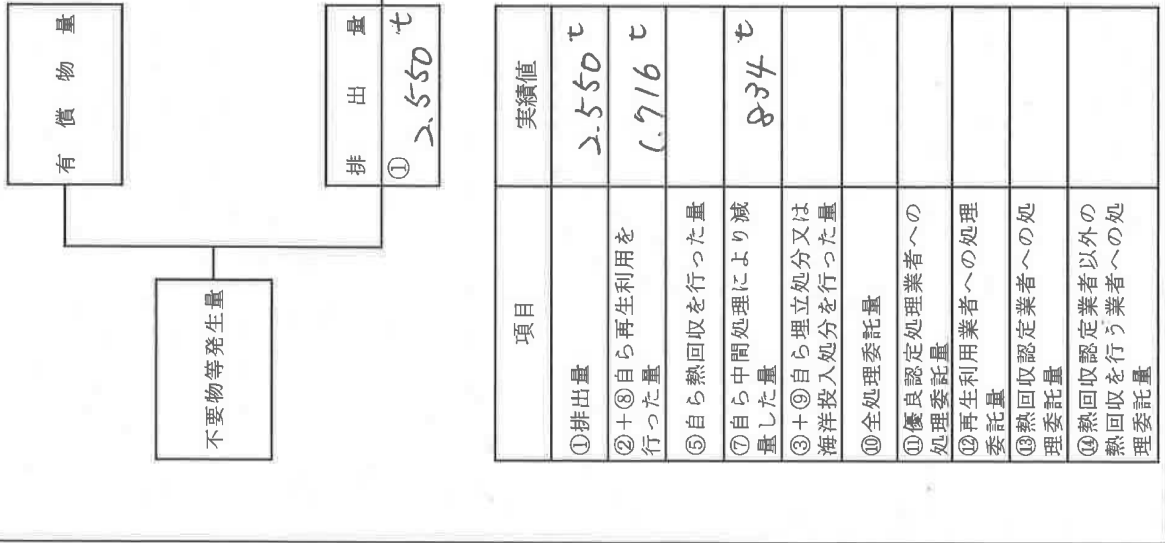 有償物量
不要物等発生量
排出量
①
2.550 t
項目
実績値
①排出量
2.550 t
②+⑧自ら再生利用を
行った量
1.716 t
⑤自ら熱回収を行った量
⑦自ら中間処理により減
量した量
834 t
③+⑨自ら埋立処分又は
海洋投入処分を行った量
⑩全処理委託量
⑪優良認定処理業者への
処理委託量
⑫再生利用業者への処理
委託量
⑬熱回収認定業者への処
理委託量
⑭熱回収認定業者以外の
熱回収を行う業者への処
理委託量